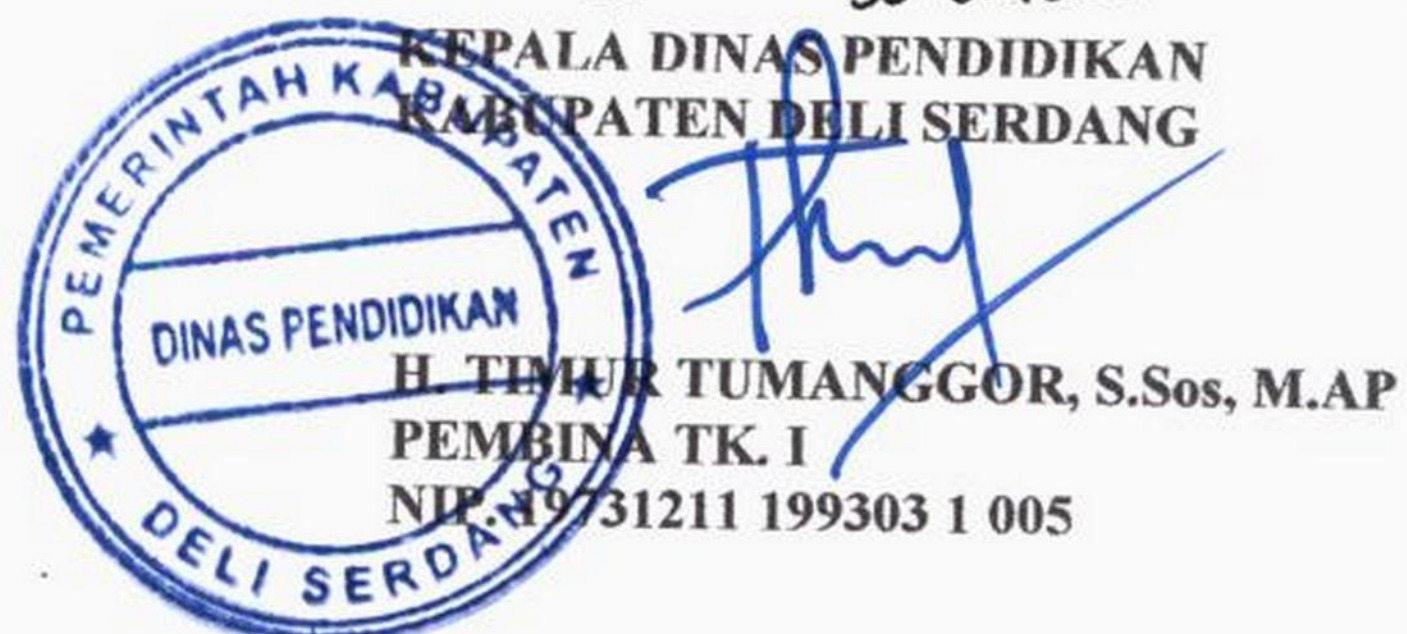 KEPALA DINAS PENDIDIKAN
KABUPATEN DELI SERDANG
PEMERINTAH KABUPATEN
DINAS PENDIDIKAN
DELI SERDANG
H. TIMUR TUMANGGOR, S.Sos, M.AP
PEMBINA TK. I
NIP. 19731211 199303 1 005